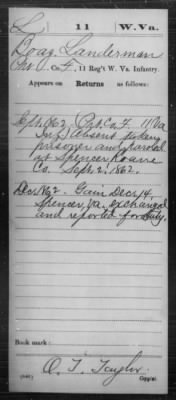 L | 11 | W.Va.
Boaz Landerman
Pvt., Co. F, 11 Reg't W. Va. Infantry.
Appears on Returns as follows:
Sept. 1862. Pvt Co. F. 11 Va
Inf. Absent taken
prisoner and paroled
at Spencer Roane
Co. Sept. 2, 1862.
Dec 1862. Gain Decr 14,
Spencer, Va. exchanged
and reported for duty.
Book mark:
O. T. Taylor
(546) Copyist.